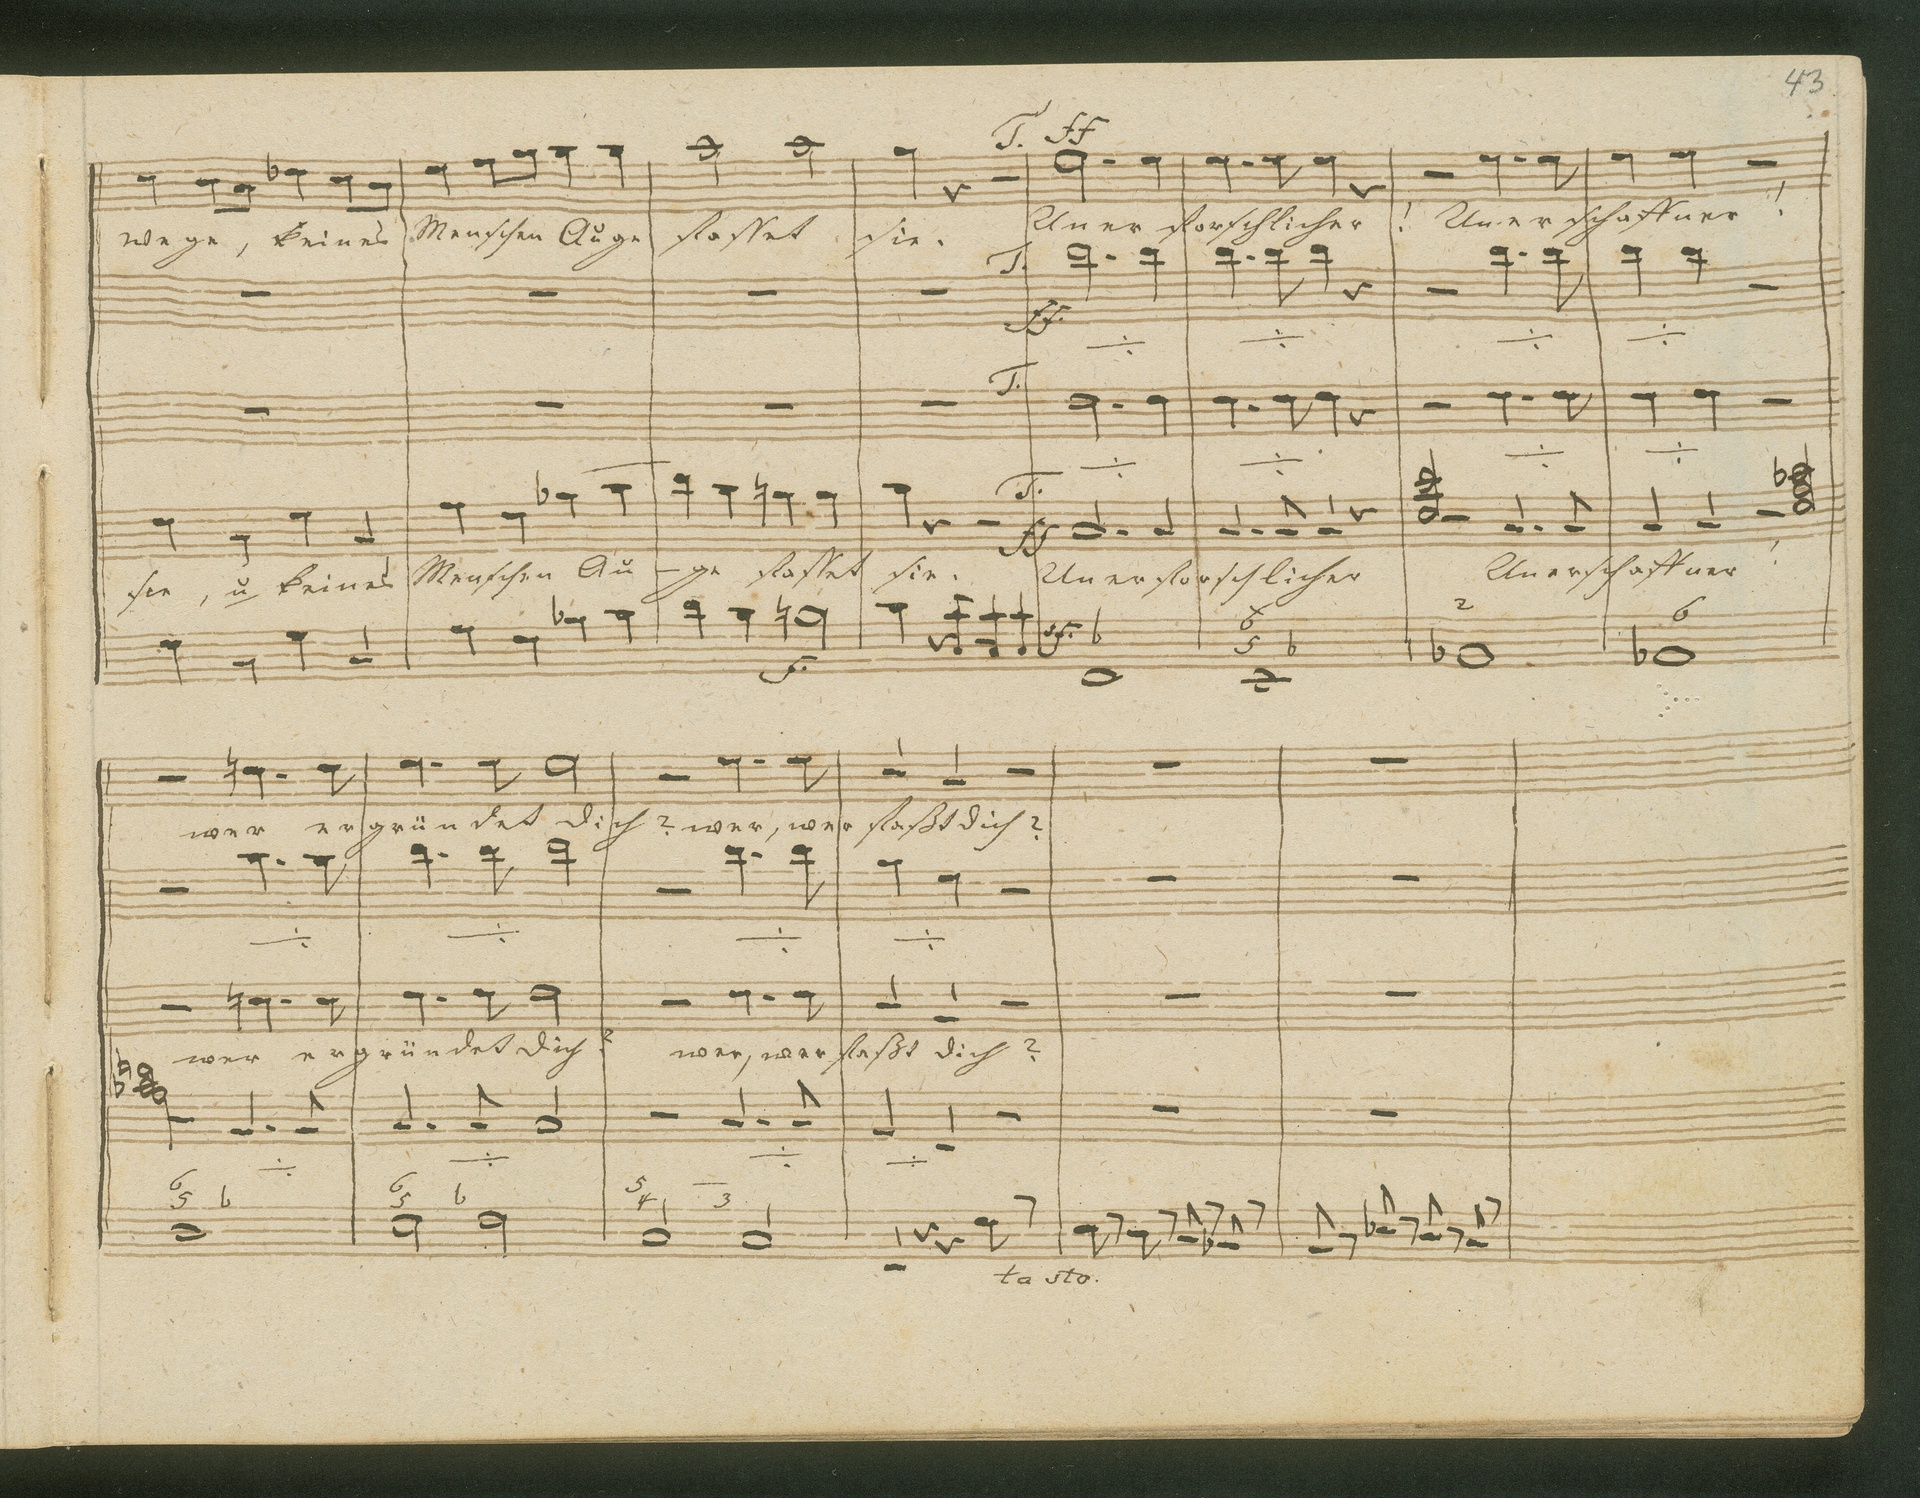 43
T. ff
wege, keines Menschen Auge fasset sie. Unerforschlicher! Unerschaffner!
T.
ff.
T.
T.
ff
sie, u keines Menschen Au-ge fasset sie. Unerforschlicher Unerschaffner!
ff. b 6 5 b 2 6
f.
wer ergründet dich? wer, wer faßt dich?
wer ergründet dich? wer, wer faßt dich?
6 5 b 6 5 b 5 4 3
tasto.